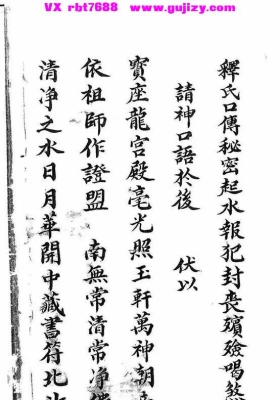 VX rbt7688 www.gujizy.com
釋氏口傳秘密起水報犯封喪殯殮喝
請神口語於後 伏以
寶座龍宮殿毫光照玉軒萬神朝
依祖師作證盟 南無常清常净
清净之水日月華開中藏書符北